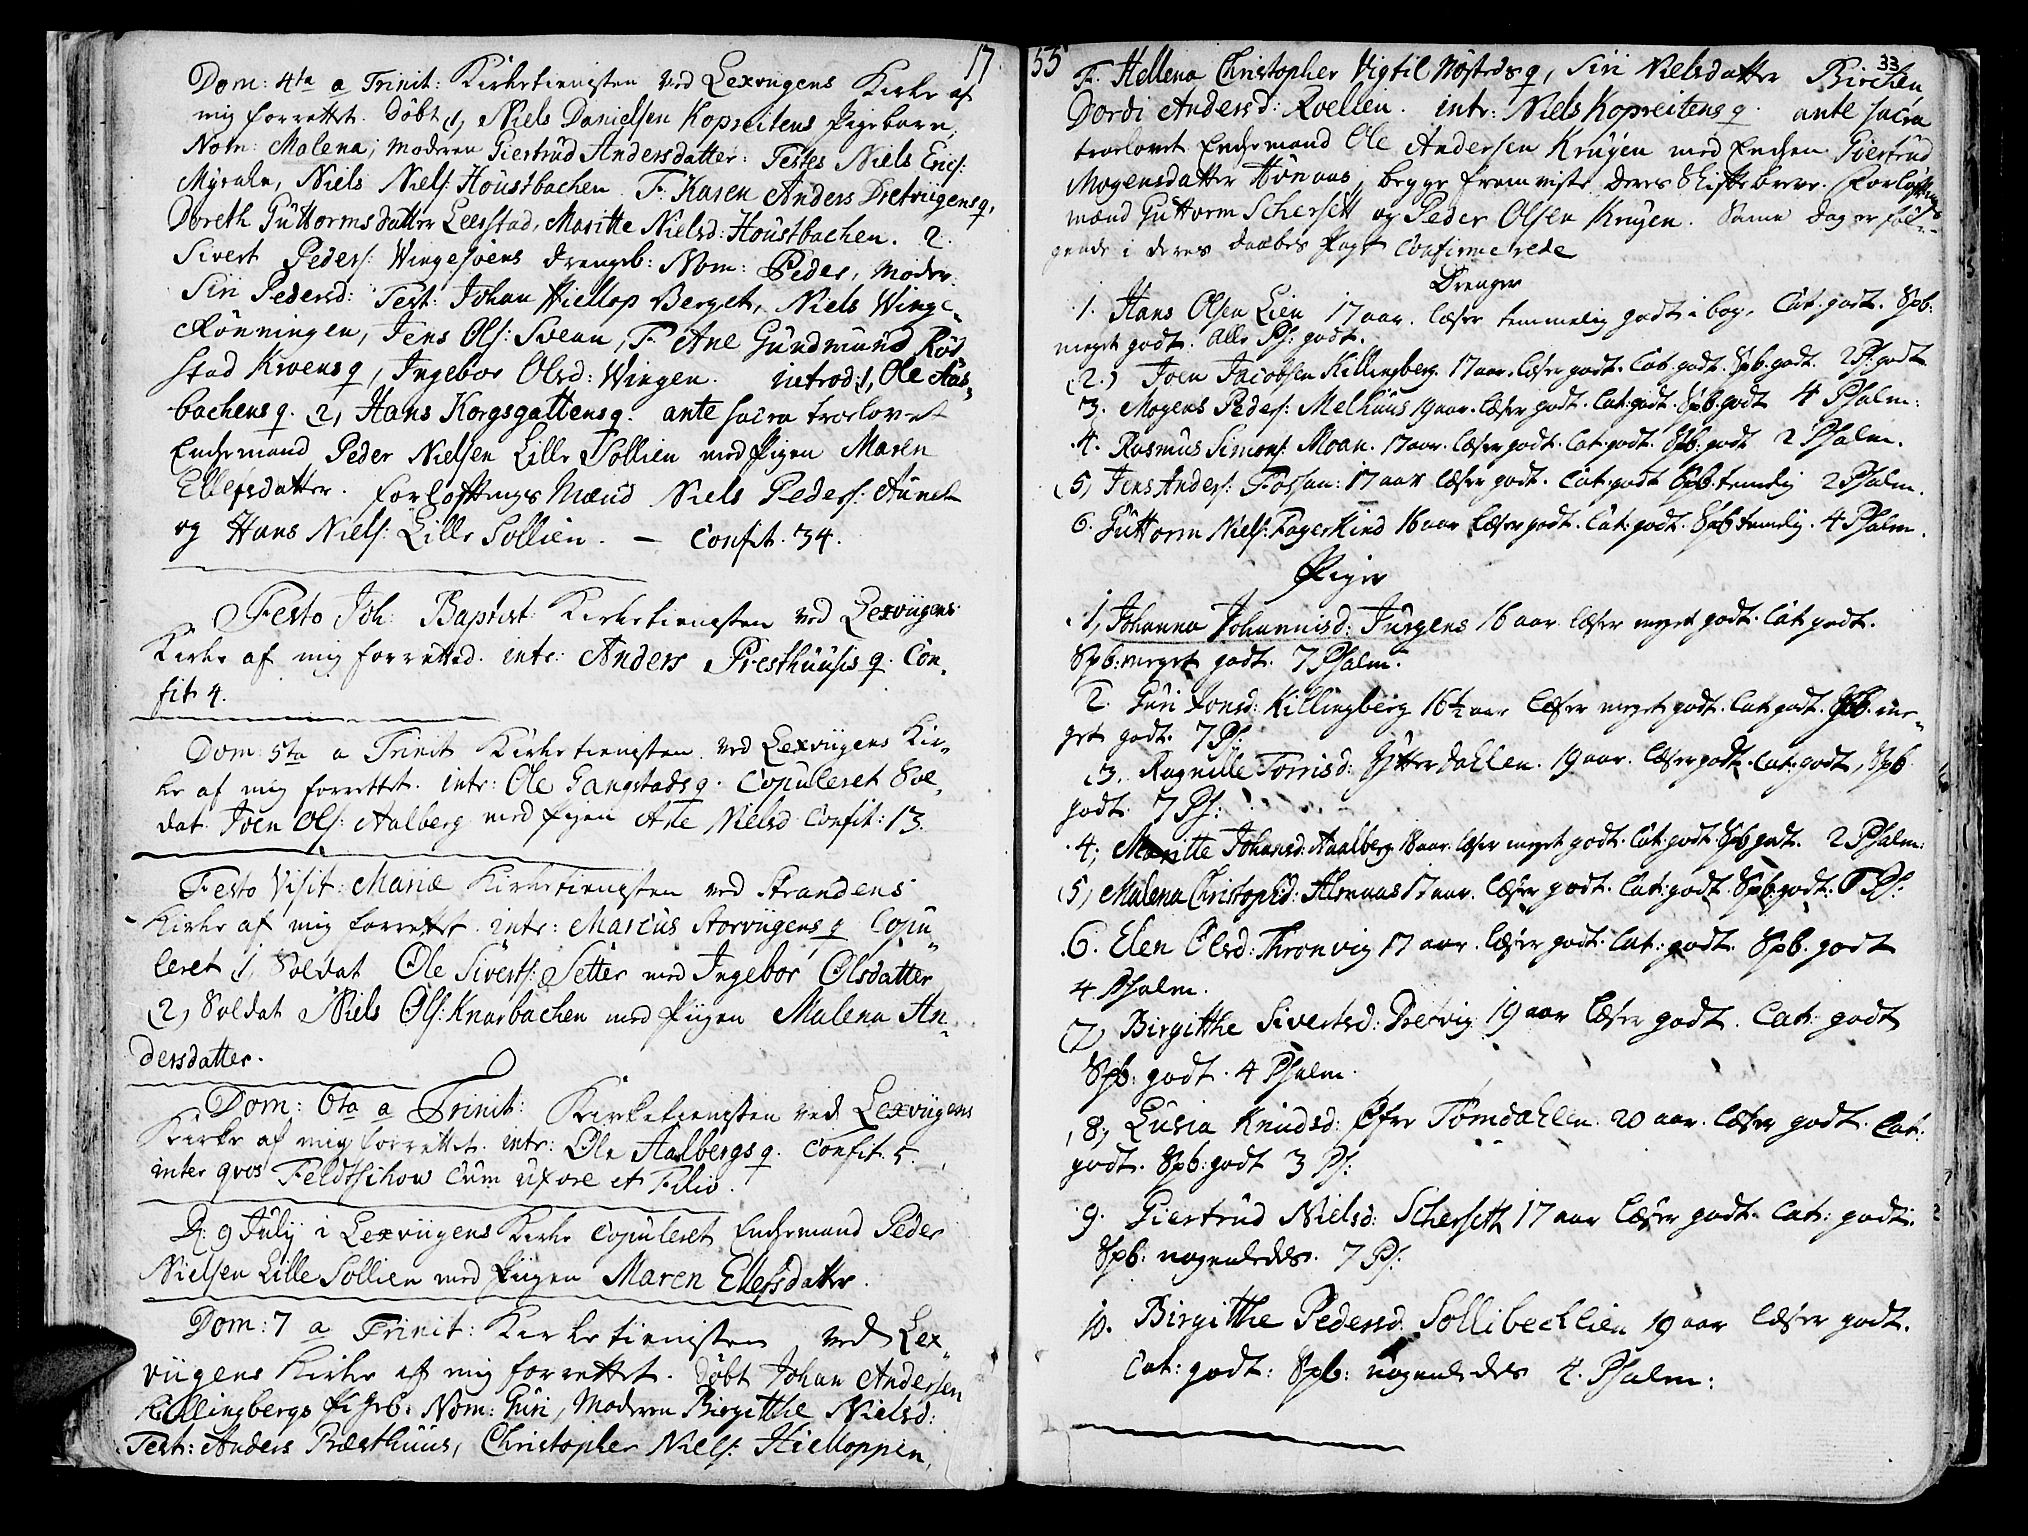 17
Dom: 4ta a Trinit: Kirketienesten ved Lexvigens Kirke af
mig forrettet. Døbt 1, Niels Danielsen Kopreitens Pigebarn,
Nom: Malena; Moderen Giertrud Andersdatter: Testes Niels Erics:
Myrahn, Niels Niels: Houstbachen. F. Karen Anders Dretviigens q,
Doreth Guttormsdatter Leerstad, Maritte Nielsd: Houstbachen. 2.
Sivert Peders: Wingesvens drengeb: Nom: Peder, Moder:
Siri Pedersd: Test: Johan Hiellop Berget, Niels Winge-
Rönningen, Jens Ols: Svean, F. Ane Gundmund Röd-
stad Kroens q, Ingebor Olsd: Wingen. introd: 1, Ole Aas-
bachens q. 2, Hans Korgsgattens q. ante sacra troelovet
Enchemand Peder Nielsen Lille Sollien med Pigen Maren
Ellefsdatter. forlofftnings Mænd Niels Peders: Aunet
og Hans Niels: Lille Sollien. — Confit. 34.
Festo Joh: Baptist: Kirketienesten ved Lexviigens
Kirke af mig forretted. intr: Anders Presthuusis q. Con-
fit 4.
Dom: 5ta a Trinit Kirketienesten ved Lexviigens Kir-
ke af mig forrettet. intr: Ole Gangstads q. Copuleret Sol-
dat Joen Ols: Aalberg med Pigen Ane Nielsd Confit: 13.
Festo Visit: Mariæ Kirketienesten ved Strandens
Kirke af mig forrettet. intr: Marcus Storviigens q Copu-
leret 1, Soldat Ole Siverts: Setter med Ingebor Olsdatter
(2) Soldat Niels Ols: Knarbachen med Piigen Malena An-
dersdatter.
Dom: 6ta a Trinit: Kirketienesten ved Lexviigens
Kirke af mig forrettet. intr: Ole Aalbergs q. Confit. 5.
inter qvos Feldtschow cum uxore et Filio.
D: 9 Julij i Lexviigens Kirke copuleret Enchemand Peder
Nielsen Lille Sollien med Piigen Maren Ellefsdatter.
Dom: 7 a Trinit: Kirketienesten ved Lex-
viigens Kirke af mig forrettet. Døbt Johan Andersen
Killingbergs Pigeb: Nom: Guri, Moderen Birgitthe Nielsd:
Test: Anders Præsthuus, Christopher Niels: Hielloppen,
55
33
F. Hellena Christopher Vigtil Nøsteds q, Siri Nielsdatter Birchen,
Dordi Andersd: Roellien. intr: Niels Kopreitens q. ante sacra
troelovet Enchemand Ole Andersen Krugen med Enchen Giertrud
Mogensdatter Hönaas, begge fremviste deres Skiftebreve. Forloftnings
mænd Guttorm Schersett og Peder Olsen Krugen. Samme dag er føl-
gende i deres daabes Pagt Confirmerede
Drenger
1. Hans Olsen Lien 17 aar. læser temmelig godt i bog. Cat: godt. Spb:
meget godt. Alle Ps: godt.
(2.) Joen Jacobsen Killingberg. 17 aar. læser godt. Cat: godt. Spb: godt. 2 Ps: godt
3. Mogens Peders: Melhuus 19 aar. læser godt. Cat: godt. Spb: godt 4 Psalm:
4. Rasmus Simons: Moan. 17 aar. læser godt. Cat: godt. Spb: godt 2 Psalm.
(5) Jens Anders: Fossan: 17 aar læser godt. Cat: godt Spb: temlig 2 Psalm.
6. Guttorm Niels: Fagerlind 16 aar læser godt. Cat: godt. Spb temlig. 4 Psalm.
Piger
1, Johanna Johannisd: Jurgens 16 aar læser meget godt. Cat godt.
Spb: meget godt. 7 Psalm.
2. Guri Jonsd: Killingberg 16½ aar læser meget godt. Cat: godt. Spb: me-
get godt. 7 Ps:
3. Ragnille Torrisd: Ytterdahlen. 19 aar. læser godt. Cat: godt, Spb
godt. 7 Ps:
4; Maritte Johansd: Aaalberg 18 aar læser meget godt. Cat: godt Spb godt. 2 Psalm:
(5) Malena Christophd: Alenaas 17 aar. læser godt. Cat: godt. Spb: godt: 6 Ps:
6. Elen Olsd: Thronvig 17 aar. læser godt. Cat: godt. Spb. godt
4 Psalm.
(7) Birgitthe Sivertsd: Dretvig 19 aar læser godt. Cat: godt
Spb: godt. 4 Psalm.
8, Lusia Knudsd: Øfre Tømdahlen. 20 aar. læser godt. Cat:
godt. Spb: godt 3 Ps:
9. Giertrud Nielsd: Schersett 17 aar læser godt. Cat: godt:
Spb: nogenledes. 7 Ps:
10. Birgitthe Pedersd: Sollibechlien 19 aar læser godt.
Cat: godt: Spb: nogenledes 4. Psalm: